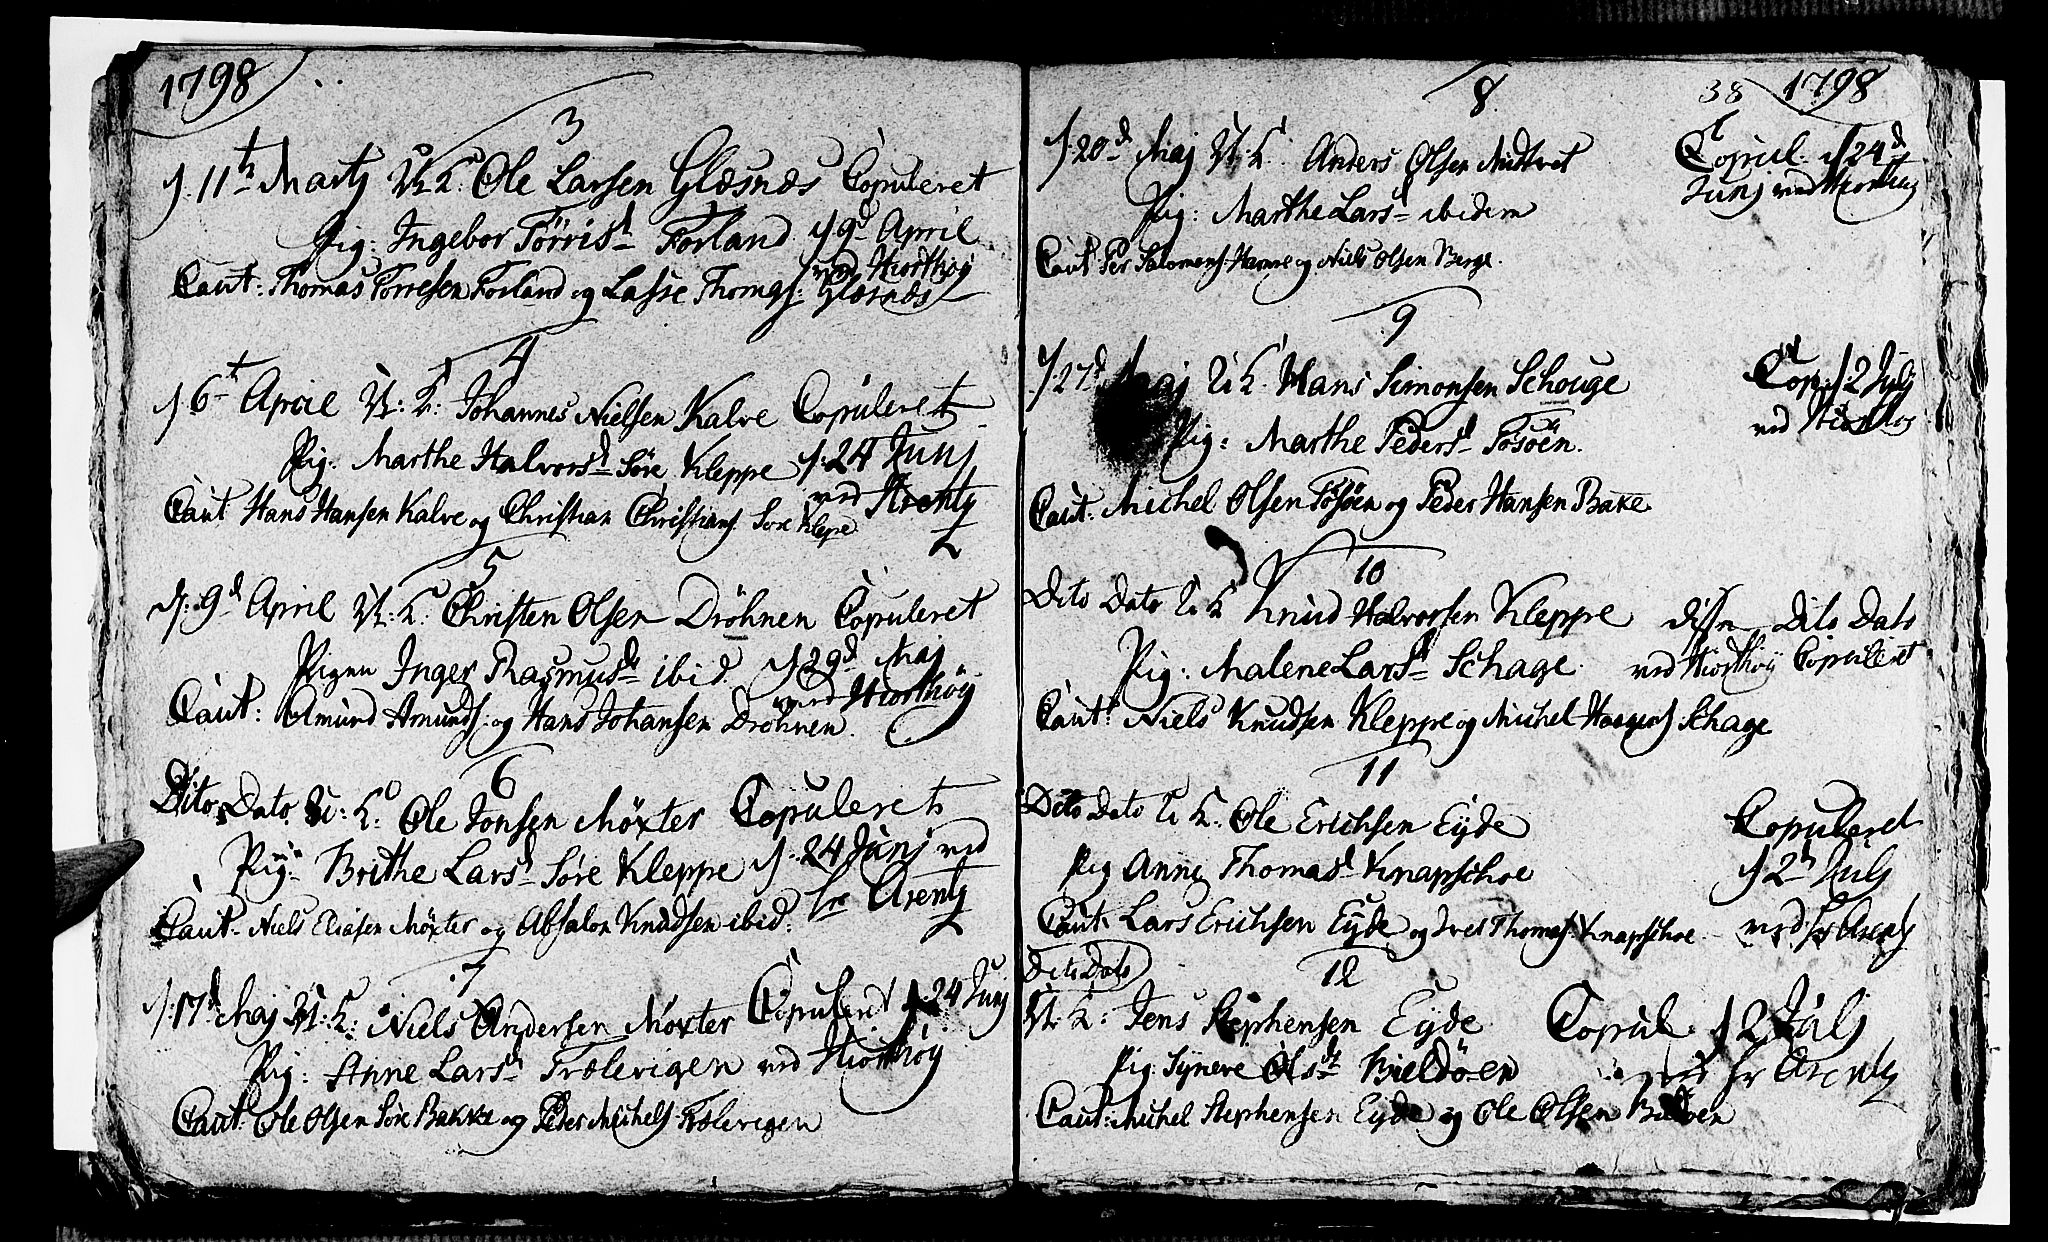 1798
3
d. 11te Martj U: K: Ole Larsen Glæsnæs Copuleret
Pig: Ingebor Tørrisd Forland d 9d April
ved Hiorthøy
Caut: Thomas Torresen Forland og Lasse Thomas: Glæsnæs
4
d 6te April U: K: Johannes Nielsen Kalve Copuleret
Pig. Marthe Halvorsd Søre Kleppe d. 24 Junj
ved Arentz
Caut Hans Hansen Kalve og Christian Christians Søre Kleppe
5
d. 9d April U: K: Christen Olsen Dröhnen Copuleret
Pigen Inger Rasmusd ibid. d 29d Maj
ved Hiorthöy
Caut: Amund Amunds. og Hans Johansen Dröhnen.
6
Dito Dato U: K: Ole Jonsen Møxter Copuleret
Pig: Brithe Larsd Søre Kleppe d. 24 Junj ved
hr Arentz
Caut. Niels Eliasen Møxter og Absalon Knudsen ibid:
7
d. 17d Maj U: K: Niels Andersen Møxter Copuleret d. 24 Junj
Pig: Anne Larsd Trælevigen ved Hiorthøy
Caut: Ole Olsen Søre Bakke og Peder Michels Trælevigen
8
38 1798
d. 20d Maj U. K. Anders Olsen Midtvet Copul. d 24d
Junj ved Hiorthøy
Pig: Marthe Larsd ibidem
Caut Per Salomons. Hamre og Niels Olsen Berge.
9
d 27d Maj U K. Hans Simonsen Schouge Cop: d. 2 Julj
ved Hiorthøy
Pig: Marthe Pedersd Fosøen.
Caut: Michel Olsen Fosøen og Peder Hansen Bake
10
Dito Dato U K Knud Halvorsen Kleppe disse Dito Dato
Pig: Malene Larsd Schage ved Hiorthöy Copuleret
Caut: Niels Knudsen Kleppe og Michel Schage
11
Dito Dato U K. Ole Erichsen Eyde Copuleret
Pig Anne Thomasd Knapschoe d 2 Julj
Caut: Lars Erichsen Eyde og Iver Thomas. Knapschoe ved hr Arentz
Dito Dato
12
U. K: Jens Stephensen Eyde Copul. d 2 Julj
Pig Synneve Olsd Bieldøen ved hr Arentz
Caut: Michel Stephensen Eyde og Ole Olsen